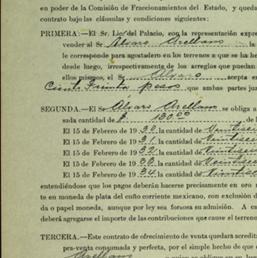 en poder de la Comisión de Fraccionamientos del Estado, y quedan
contrato bajo las cláusulas y condiciones siguientes:
PRIMERA.—El Sr. Lic. del Palacio, con la representación expre
vender al Sr. Alvaro Arellano la
le corresponde para agostadero en los terrenos a que se ha he
desde luego, irrevocablemente de los arreglos que puedan
ellos mismos, el Sr. Alvaro acepta e
Ciento Treinta pesos, que ambas partes ju
SEGUNDA.—El Sr. Alvaro Arellano se obliga a
sada cantidad de $ 130.00
El 15 de Febrero de 19 la cantidad de
El 15 de Febrero de 19 31. la cantidad de
El 15 de Febrero de 19 32. la cantidad de
El 15 de Febrero de 19 33. la cantidad de
El 15 de Febrero de 19 34. la cantidad de
entendiéndose que los pagos deberán hacerse precisamente en oro
te en moneda de plata del cuño corriente mexicano, con exclusión d
da o papel moneda, aunque por ley sea forzosa su admisión. A ca
deberá agregarse el importe de las contribuciones que cause el terren
TERCERA.—Este contrato de ofrecimiento de venta quedará acredit
pra-venta consumada y perfecta, por el simple hecho de que
Arellano
se obliga